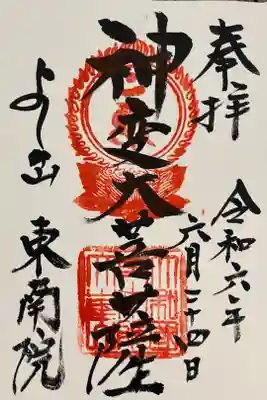 奉拝
令和六年
六月二十四日
神変大菩薩
よし出
東南院